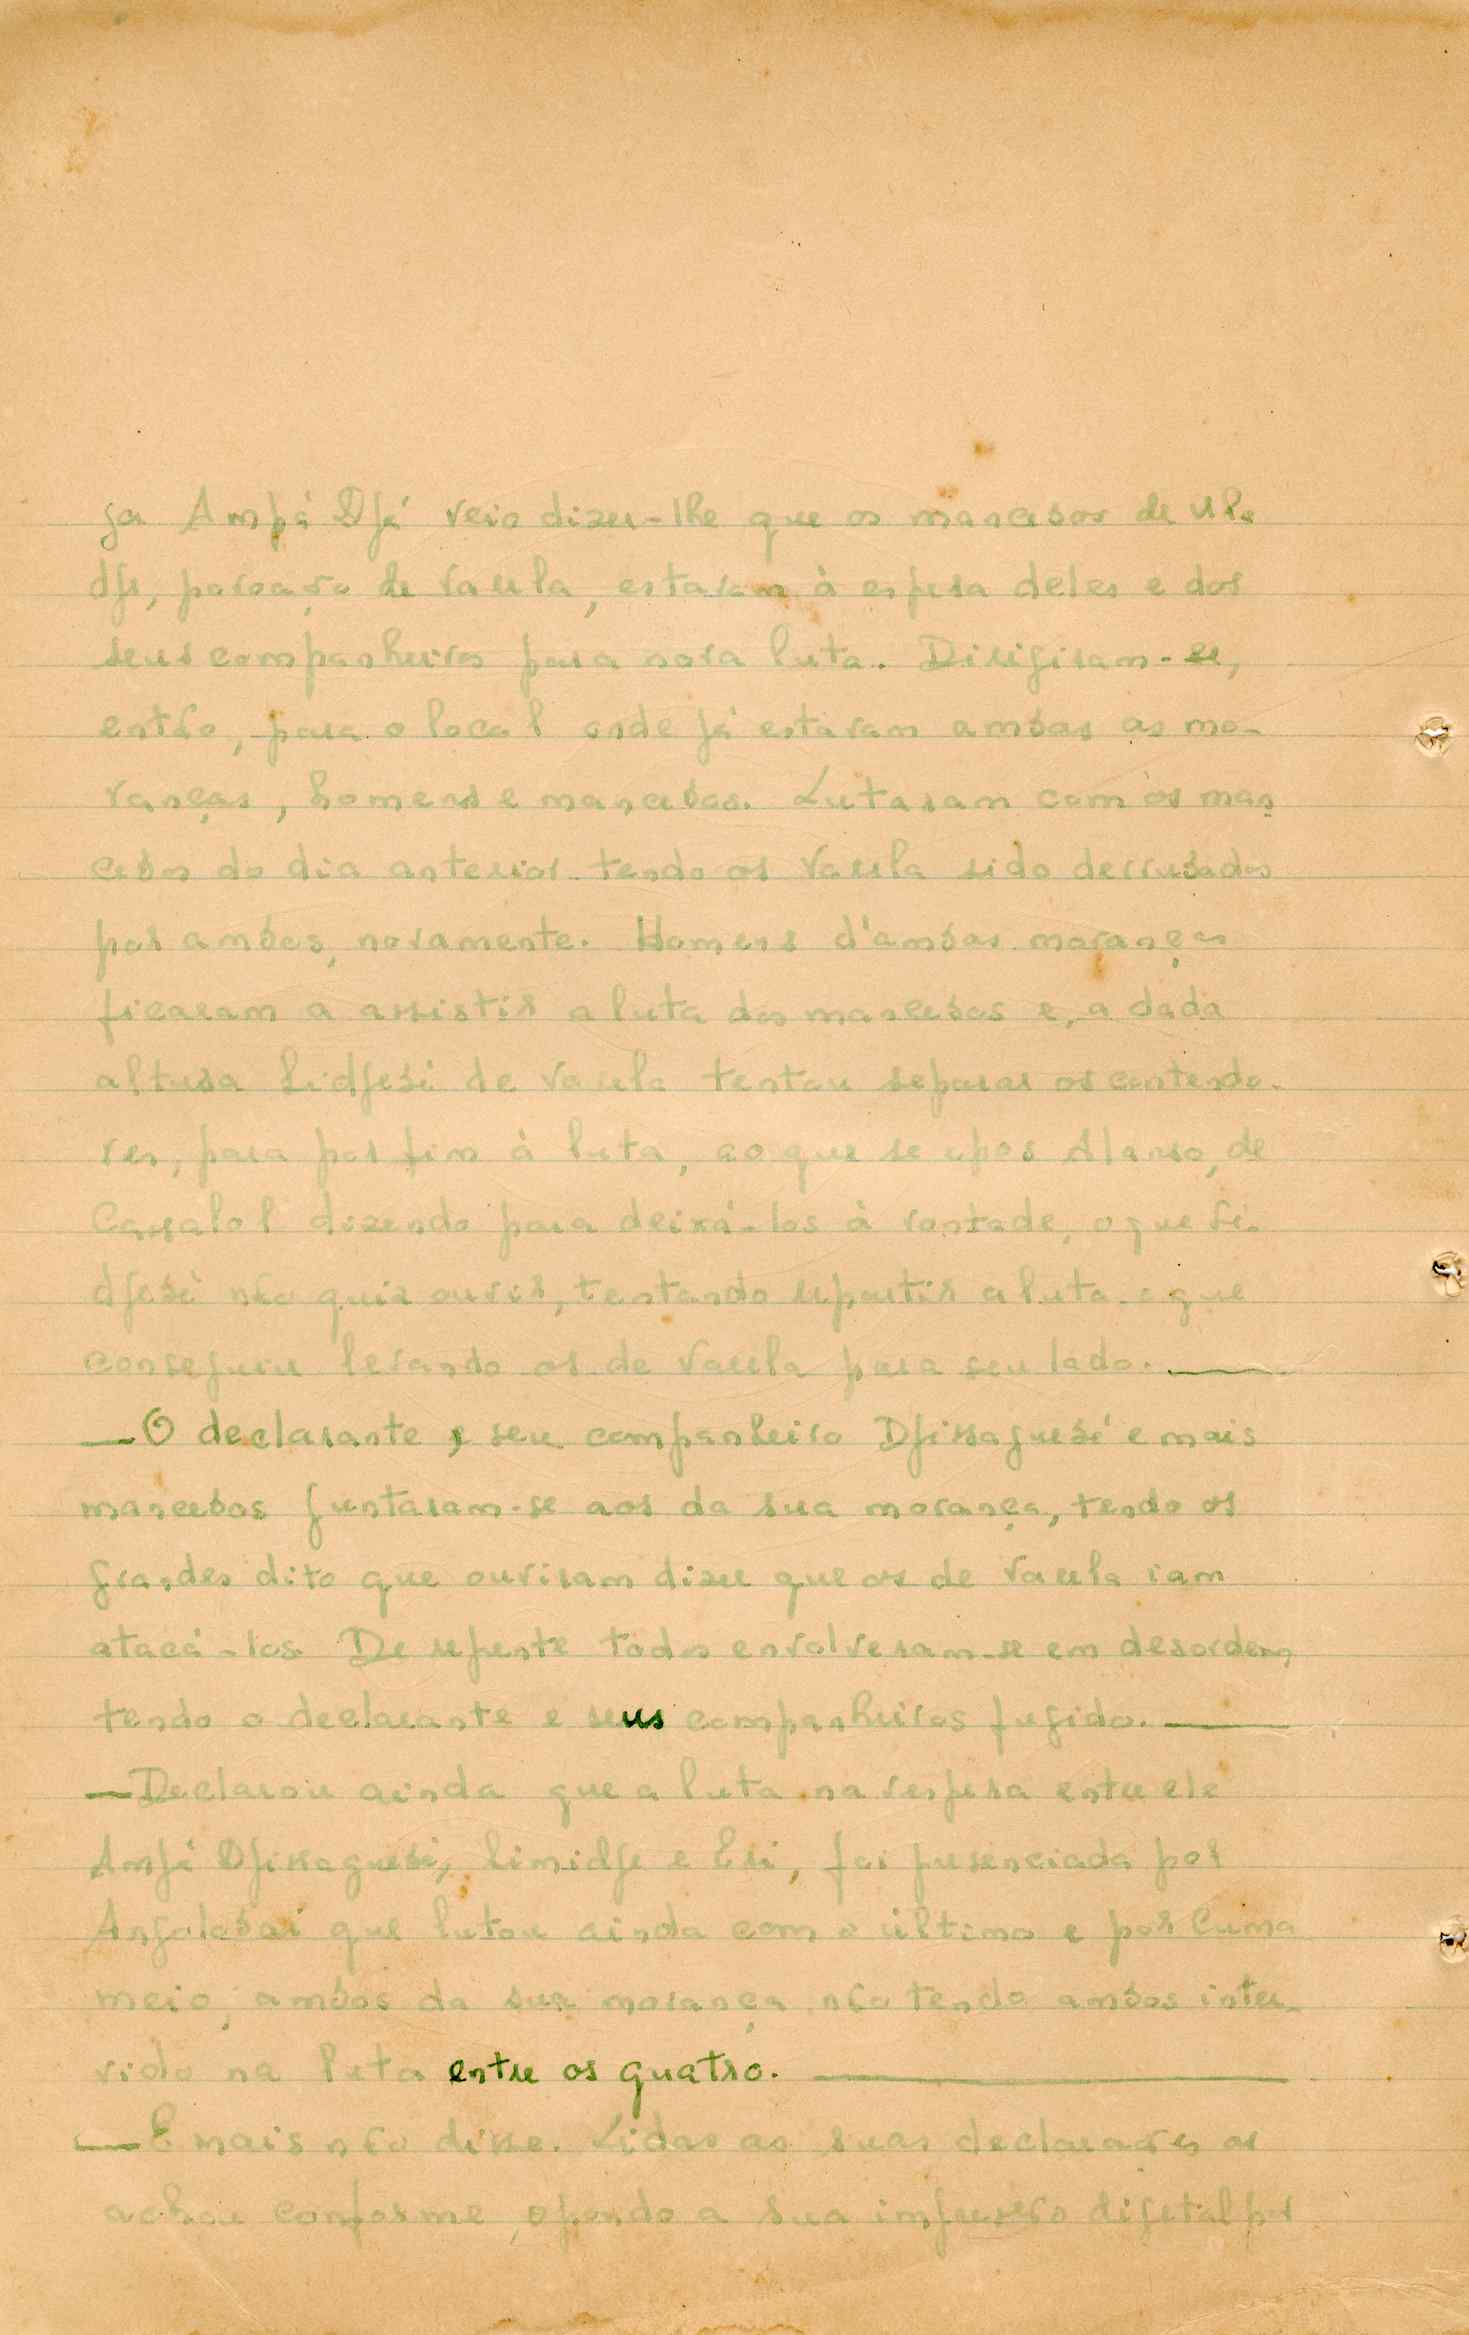 ga Ampá Djá veio dizer-lhe que os mancebos de Ule
dje, povoação de Varela, estavam à espera deles e dos
seus companheiros para nova luta. Dirigiram-se,
então, para o local onde já estavam ambas as mo-
ranças, homens e mancebos. Lutaram com os man
cebos do dia anterior tendo os Varela sido derrubados
por ambos, novamente. Homens d'ambas moranças
ficaram a assistir a luta dos mancebos e, a dada
altura Lidjebi de Varela tentou separar os contendo-
res, para por fim à luta, ao que se opos Alanso, de
Cassalol dizendo para deixá-los à vontade, o que Li-
djebi não quiz ouvir, tentando repartir a luta o que
conseguiu levando os de Varela para seu lado.
— O declarante e seu companheiro Djissaguebi e mais
mancebos juntaram-se aos da sua morança, tendo os
grandes dito que ouviram dizer que os de Varela iam
atacá-los. De repente todos envolveram-se em desordem
tendo o declarante e seus companheiros fugido.
— Declarou ainda que a luta na vespera entre ele
Ampá Djissaguebi, Limidje e Eri, foi presenciada por
Angolabai que lutou ainda com o último e por Cuma
meio, ambos da sua morança não tendo ambos inter-
vido na luta entre os quatro.
— E mais não disse. Lidas as suas declarações as
achou conforme, opondo a sua impressão digital por